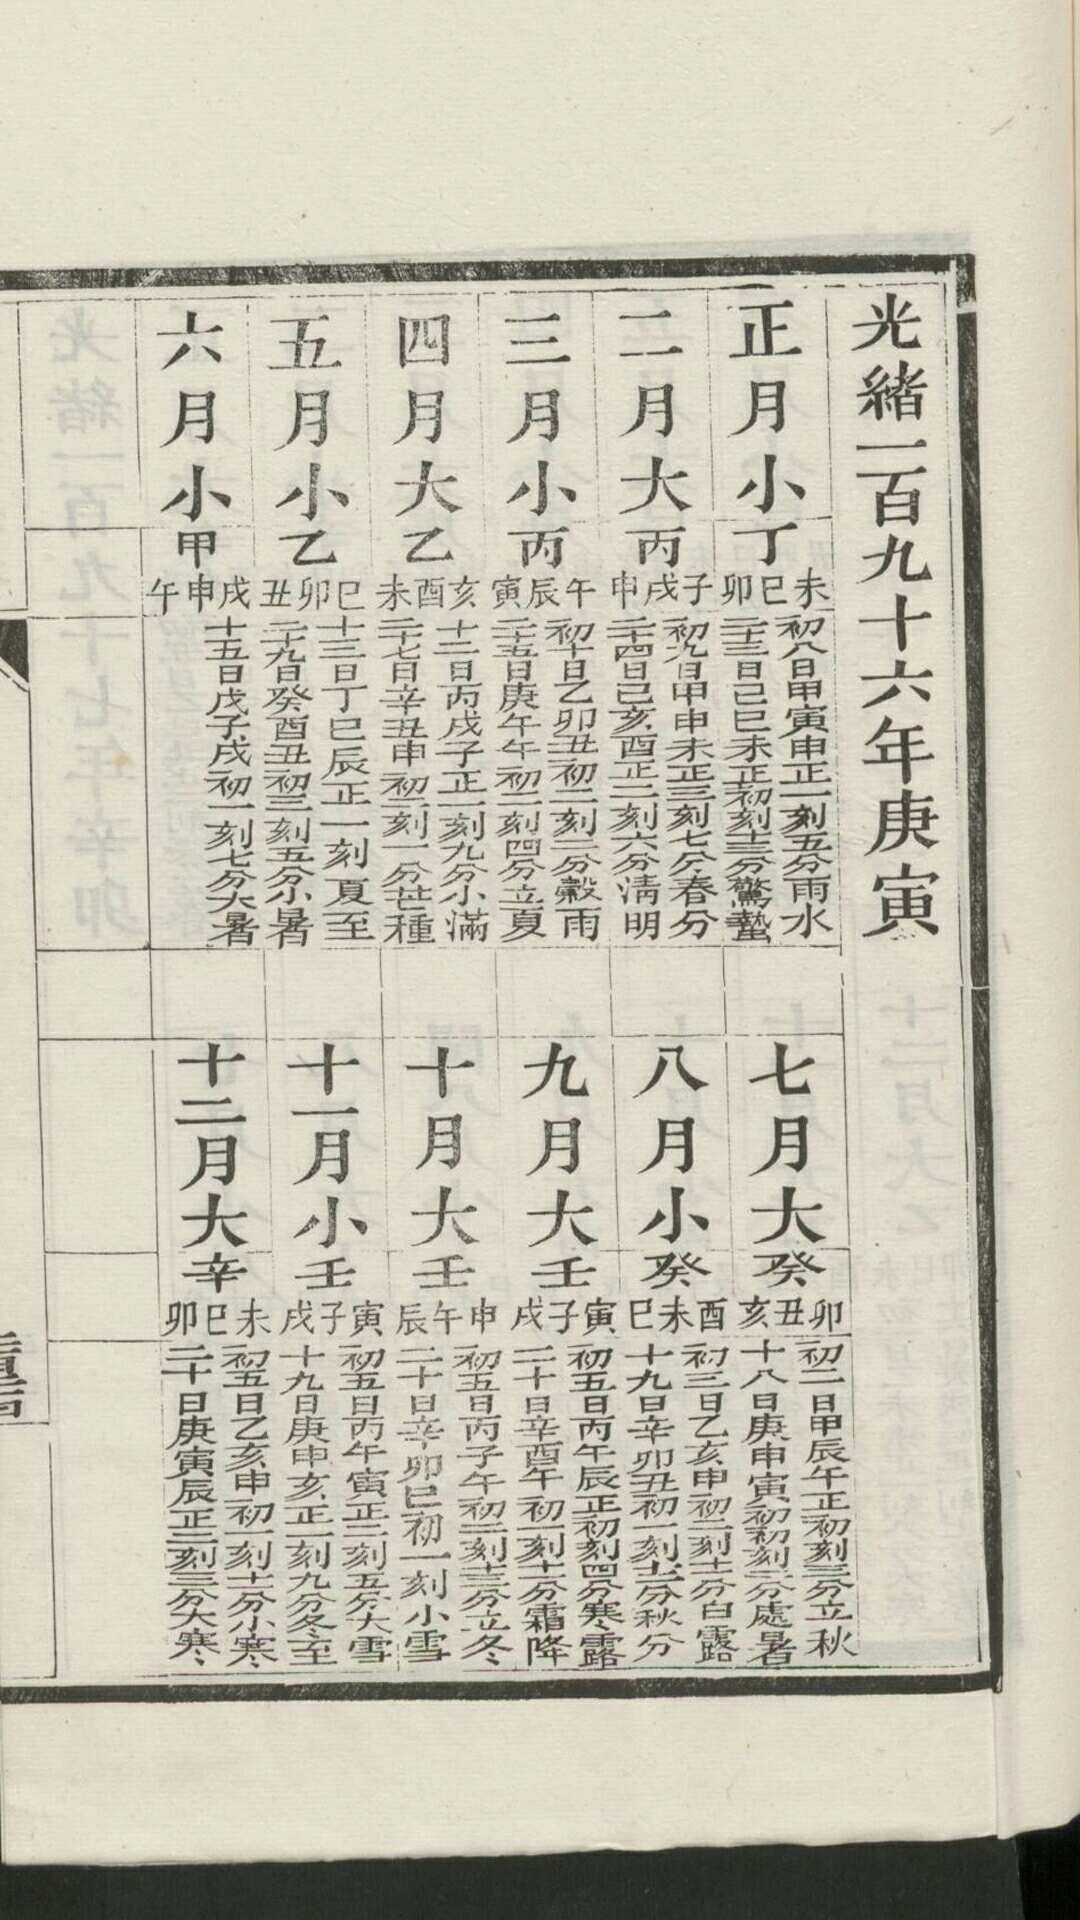 光緒一百九十六年庚寅
正月小
丁
未巳卯
初八日甲寅申正一刻五分雨水
二十三日己巳未正初刻十三分驚蟄
二月大
丙
子戌申
初九日甲申未正三刻七分春分
二十四日己亥酉正二刻六分淸明
三月小
丙
午辰寅
初十日乙卯丑初二刻二分穀雨
二十五日庚午午初二刻四分立夏
四月大
乙
亥酉未
十二日丙戌子正一刻九分小滿
二十七日辛丑申初二刻一分芒種
五月小
乙
巳卯丑
十三日丁巳辰正一刻夏至
二十九日癸酉丑初三刻五分小暑
六月小
甲
戌申午
十五日戊子戌初一刻七分大暑
七月大
癸
卯丑亥
初二日甲辰午正初刻三分立秋
十八日庚申寅初初刻二分處暑
八月小
癸
酉未巳
初三日乙亥申初二刻十一分白露
十九日辛卯丑初一刻十二分秋分
九月大
壬
寅子戌
初五日丙午辰正初刻四分寒露
二十日辛酉午初一刻十一分霜降
十月大
壬
申午辰
初五日丙子午初二刻十三分立冬
二十日辛卯巳初一刻小雪
十一月小
壬
寅子戌
初五日丙午寅正二刻五分大雪
十九日庚申亥正一刻九分冬至
十二月大
辛
未巳卯
初五日乙亥申初一刻十一分小寒
二十日庚寅辰正三刻三分大寒